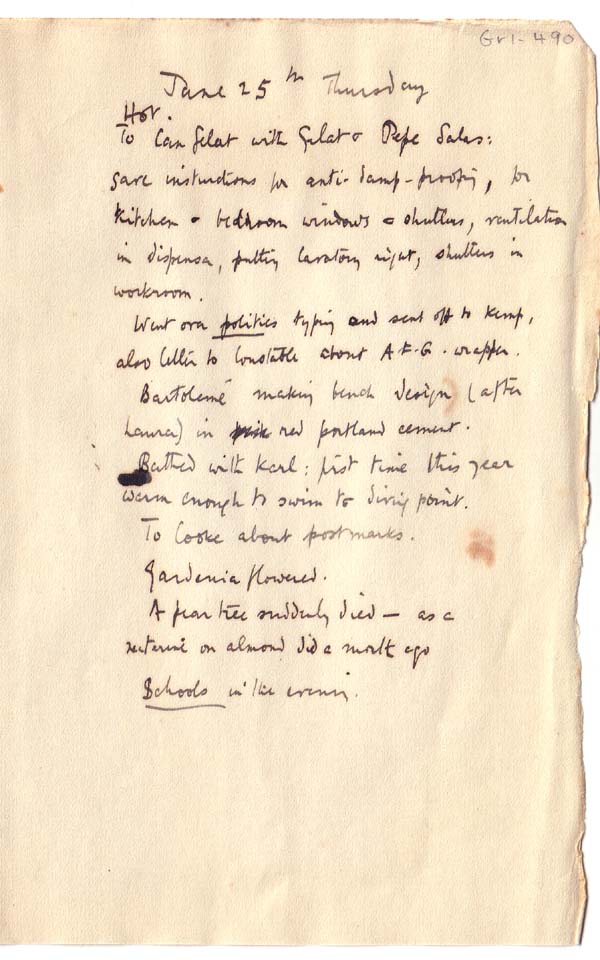 Gr1-490
June 25th Thursday
Hot.
To Can Gelat with Gelat & Pepe Salas:
gave instructions for anti-damp-proofing, for
kitchen & bedroom windows & shutters, ventilation
in dispensa, putting lavatory right, shutters in
workroom.
Went over politics typing and sent off to Kemp,
also letter to Constable about A-F-G. wrapper.
Bartolomé making bench design (after
Laura) in red portland cement.
Bathed with Karl: first time this year
warm enough to swim to diving point.
To Cooke about postmarks.
Gardenia flowered.
A pear tree suddenly died — as a
nectarine on almond did a month ago
Schools in the evening.